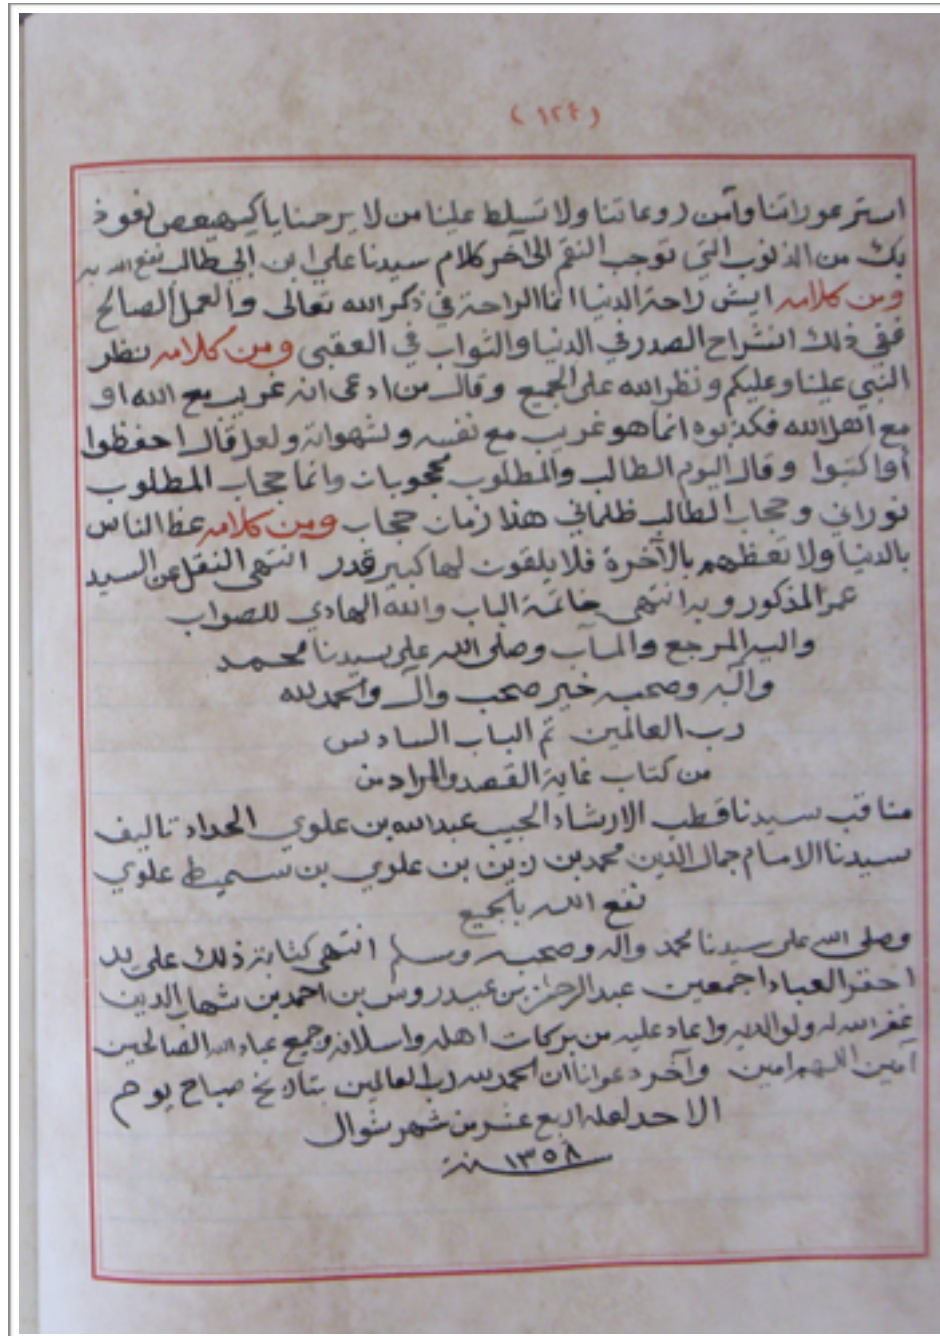 (١٢٤)
استر عوراتنا وآمن روعاتنا ولا تسلط علينا من لا يرحمنا يا كهيعص نعوذ
بك من الذنوب التي توجب النقم الى آخر كلام سيدنا علي ابن ابي طالب نفع الله به
ومن كلامه ايش راحة الدنيا انما الراحة في ذكر الله تعالى والعمل الصالح
ففي ذلك انشراح الصدر في الدنيا والثواب في العقبى ومن كلامه نظر
النبي علينا وعليكم ونظر الله على الجميع وقال من ادعى انه غريب مع الله او
مع اهل الله فكذبوه انما هو غريب مع نفسه وشهواته ولعل قال احفظوا
أو اكتبوا وقال اليوم الطالب والمطلوب محجوبات وانما حجاب المطلوب
نوراني وحجاب الطالب ظلماني هذا زمان حجاب ومن كلامه عظ الناس
بالدنيا ولا تعظهم بالآخرة فلا يلقون لها كبير قدر انتهى النقل عن السيد
عمر المذكور وبه انتهى خاتمة الباب والله الهادي للصواب
واليه المرجع والمآب وصلى الله على سيدنا محمد
وآله وصحبه خير صحب وآل والحمد لله
رب العالمين تم الباب السادس
من كتاب غاية القصد والمراد من
مناقب سيدنا قطب الارشاد الحبيب عبدالله بن علوي الحداد تاليف
سيدنا الامام جمال الدين محمد بن زين بن علوي بن سميط علوي
نفع الله بالجميع
وصلى الله على سيدنا محمد وآله وصحبه وسلم انتهى كتابة ذلك على يد
احقر العباد اجمعين عبد الرحمن بن عيدروس بن احمد بن شهاب الدين
غفر الله له ولوالديه واعاد عليه من بركات اهله واسلافه وجميع عباد الله الصالحين
آمين اللهم امين وآخر دعوانا ان الحمد لله رب العالمين بتاريخ صباح يوم
الاحد لعله اربع عشر من شهر شوال
١٣٥٨ سنة